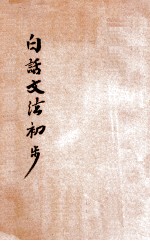 白話文法初步